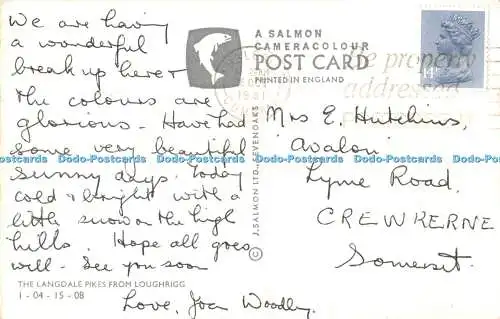 We are having
a wonderful
break up here +
the colours are
glorious - Have had
some very beautiful
sunny days. Today
cold & bright with a
little snow on the high
hills. Hope all goes
well - See you soon
THE LANGDALE PIKES FROM LOUGHRIGG
1 - 04 - 15 - 08
Love, Joan Woodley.
A SALMON
CAMERACOLOUR
POST CARD
PRINTED IN ENGLAND
© J. SALMON LTD., SEVENOAKS
1981
Be properly
addressed
14P
Mrs E. Hutchins,
Avalon,
Lyme Road,
CREWKERNE
Somerset.
Dodo-Postcards Dodo-Postcards Dodo-Postcards Dodo-Postcards Dodo-Postcards Dodo-Postcards